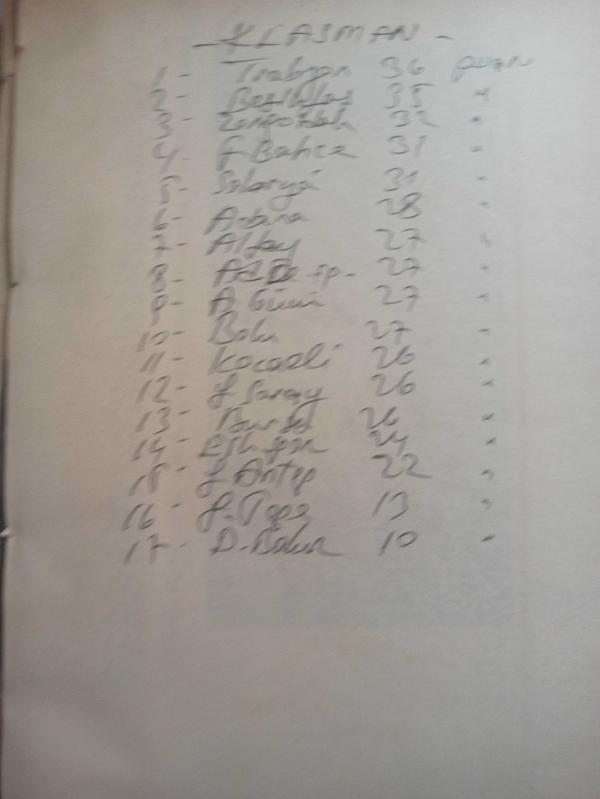 - KLASMAN -
1- Trabzon 36 puan
2- Beşiktaş 35 "
3- Zonguldak 32 "
4- f Bahçe 31 "
5- Sakarya 31 "
6- Adana 28 "
7- Altay 27 "
8- Ad De sp- 27 "
9- A Gücü 27 "
10- Bolu 27 "
11- Kocaeli 26 "
12- g Saray 26 "
13- Bursa 26 "
14- Eskşpor 24 "
15- g Antep 22 "
16- g. Tepe 13 "
17- D. Bakır 10 "